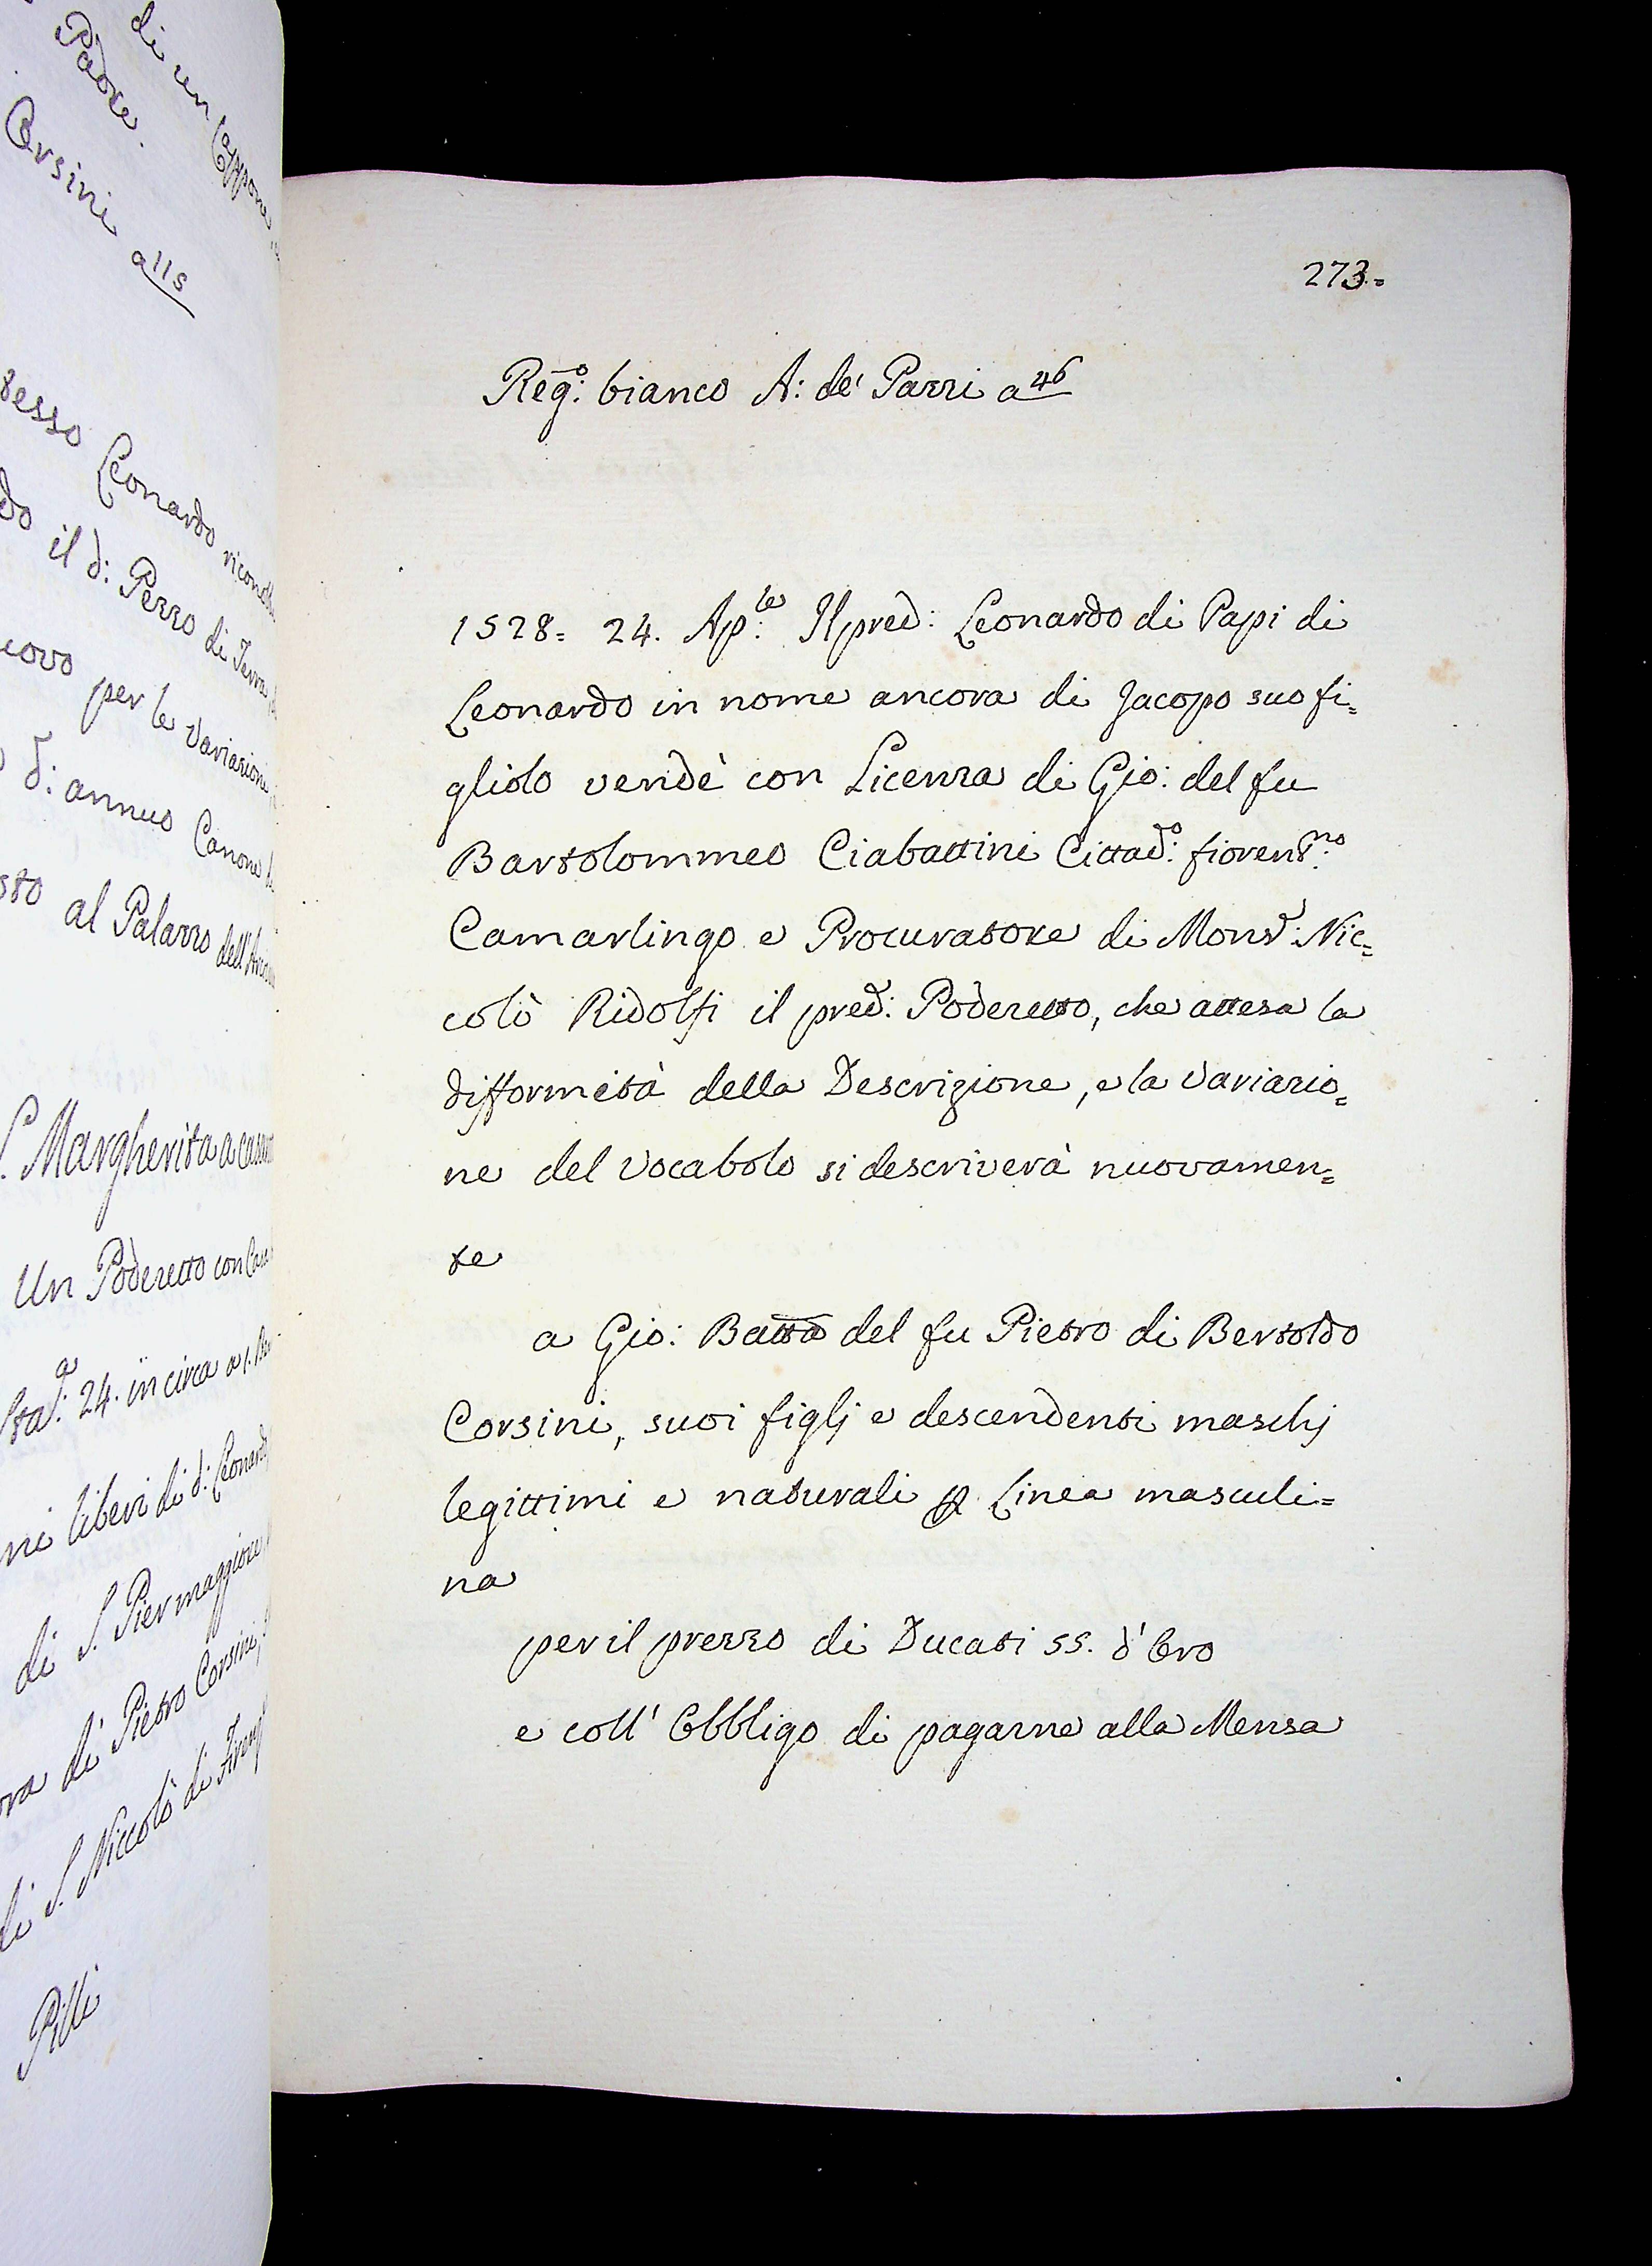 di un Cappone
Padre.
Corsini a 115
Leonardo
il d: Pezzo di Terra
per le Variazioni
d: annuo Canone
al Palazzo dell'
S. Margherita a
Un Poderetto con
24. in circa a
liberi di d:
di S. Pier maggiore
di Pietro Corsini,
di S. Niccolò di
Pitti
273=
Reg:º bianco A: de' Pazzi a 46
1528= 24. Ap:le Il pred: Leonardo di Papi di
Leonardo in nome ancora di Jacopo suo fi=
gliolo vendè con Licenza di Gio: del fu
Bartolommeo Ciabattini Cittad:º fiorent:no
Camarlingo e Procuratore di Monsr: Nic=
colò Ridolfi il pred: Poderetto, che attesa la
difformità della Descrizione, e la Variazio=
ne del Vocabolo si descriverà nuovamen=
te
a Gio: Batta del fu Pietro di Bertoldo
Corsini, suoi figlj e descendenti maschj
legittimi e naturali p Linea masculi=
na
per il prezzo di Ducati 55. d'Oro
e coll' Obbligo di pagarne alla Mensa